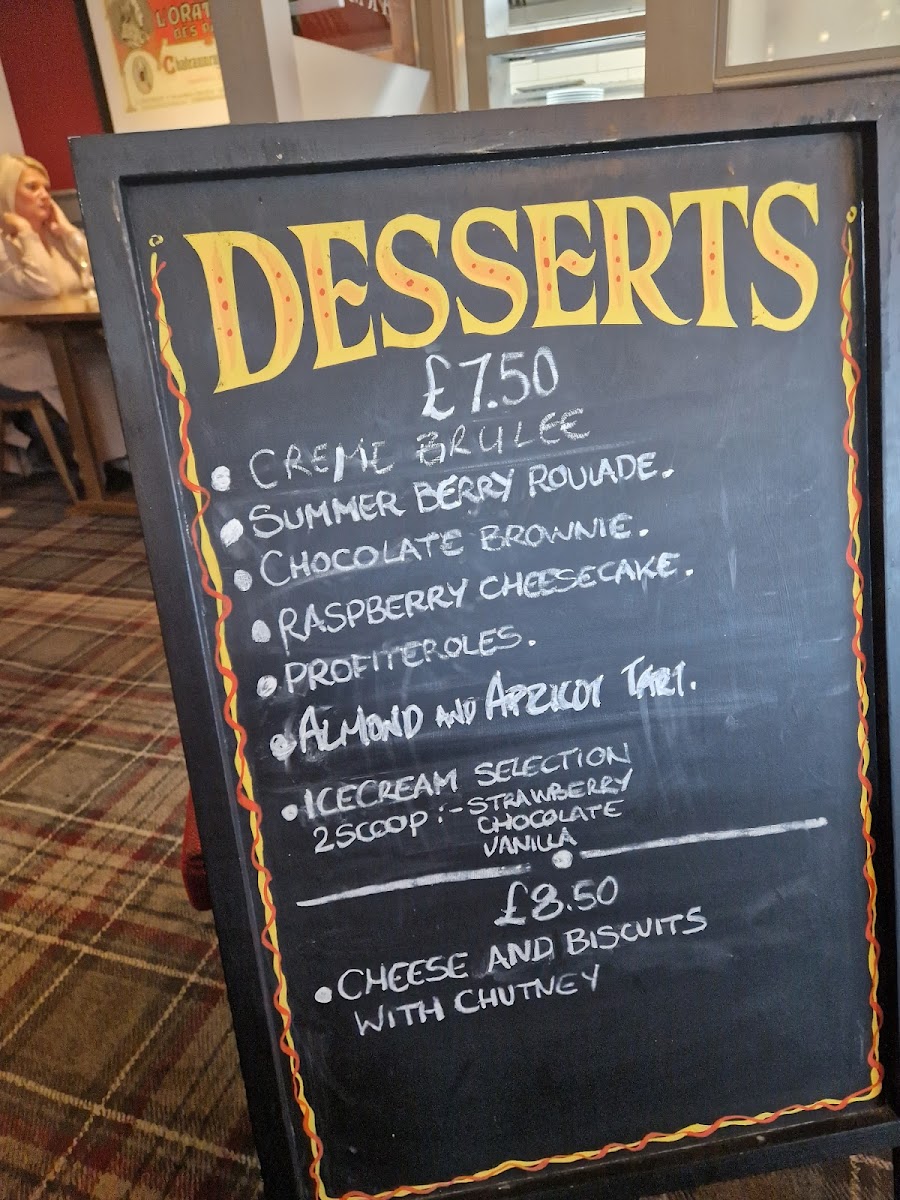 L'ORAT
DES P
DESSERTS
£7.50
• CREME BRULEE
• SUMMER BERRY ROULADE.
• CHOCOLATE BROWNIE.
• RASPBERRY CHEESECAKE.
• PROFITEROLES.
• ALMOND AND APRICOT TART.
• ICECREAM SELECTION
2SCOOP :- STRAWBERRY
CHOCOLATE
VANILLA
£8.50
• CHEESE AND BISCUITS
WITH CHUTNEY